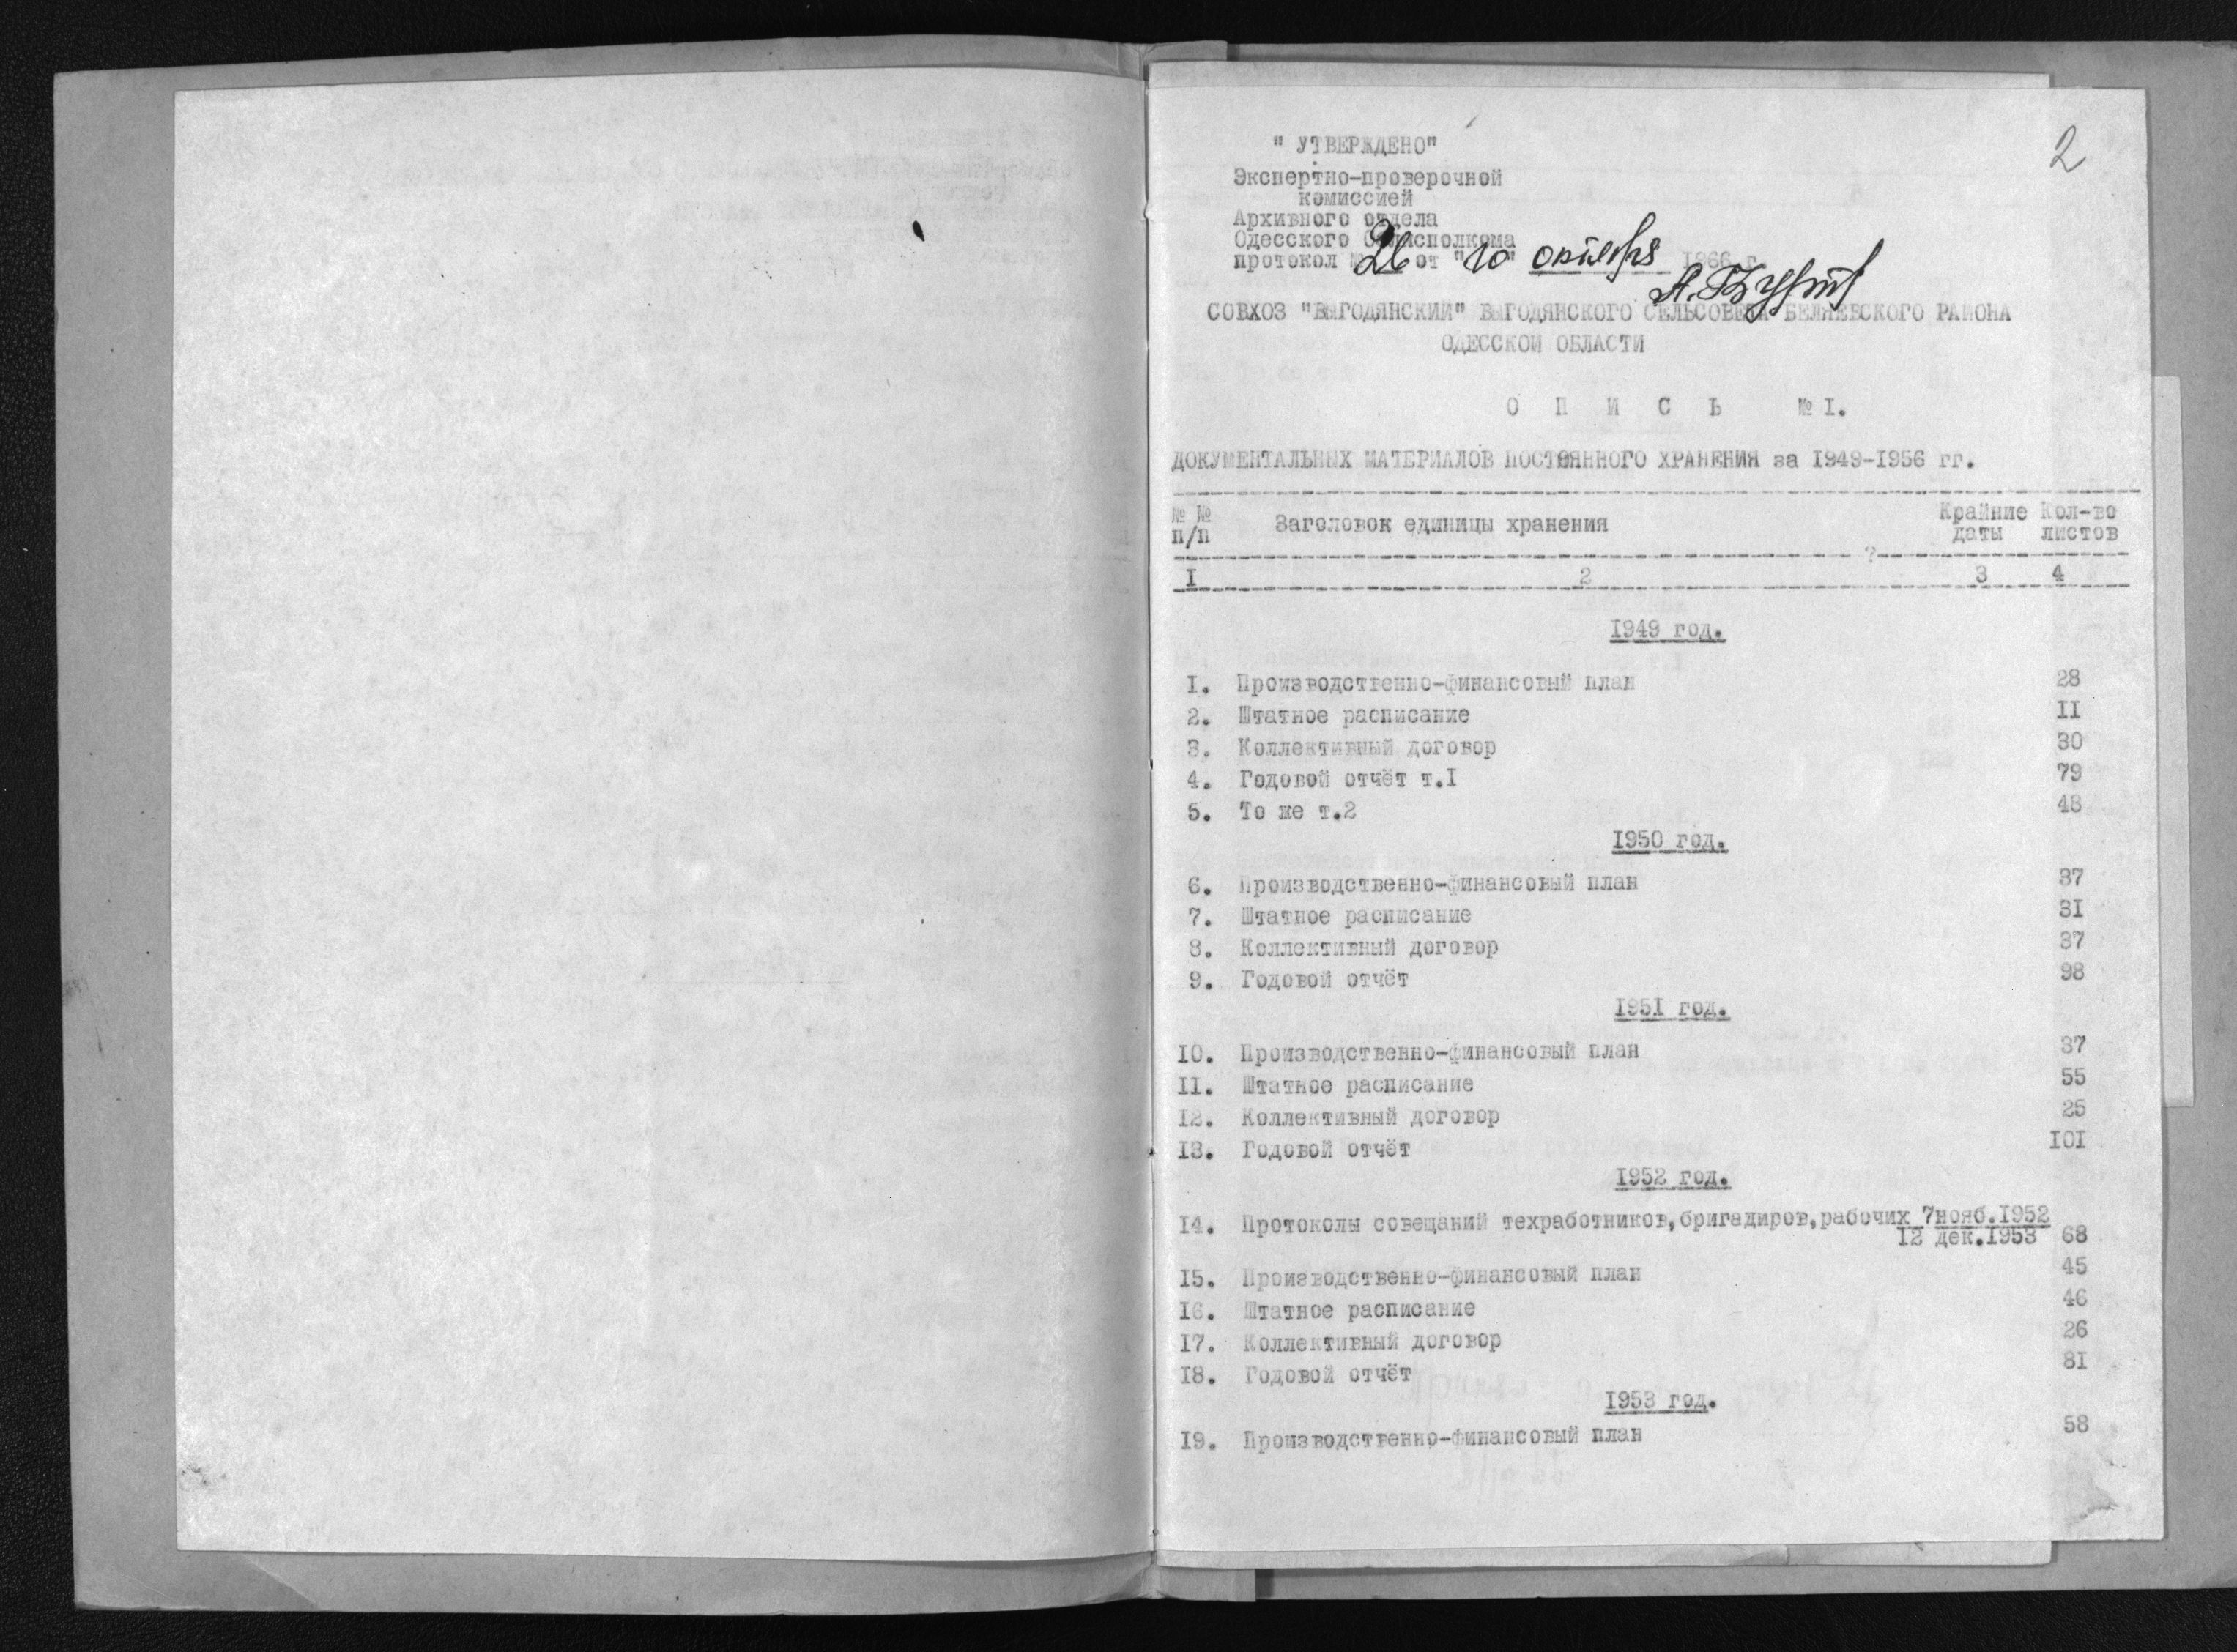 2
" УТВЕРЖДЕНО"
Экспертно-проверочной
комиссией
Архивного отдела
Одесского Облисполкома
протокол № 26 от "10" октября 1966 г.
СОВХОЗ "ВЫГОДЯНСКИЙ" ВЫГОДЯНСКОГО СЕЛЬСОВЕТА БЕЛЯЕВСКОГО РАЙОНА
ОДЕССКОЙ ОБЛАСТИ
О П И С Ь № I.
ДОКУМЕНТАЛЬНЫХ МАТЕРИАЛОВ ПОСТОЯННОГО ХРАНЕНИЯ за 1949-1956 гг.
№ № Заголовок единицы хранения Крайние Кол-во
п/п даты листов
I 2 3 4
1949 год.
I. Производственно-финансовый план 28
2. Штатное расписание II
3. Коллективный договор 30
4. Годовой отчёт т.I 79
5. То же т.2 48
1950 год.
6. Производственно-финансовый план 37
7. Штатное расписание 3I
8. Коллективный договор 37
9. Годовой отчёт 98
I95I год.
I0. Производственно-финансовый план 37
II. Штатное расписание 55
I2. Коллективный договор 25
I3. Годовой отчёт I0I
I952 год.
I4. Протоколы совещаний техработников,бригадиров,рабочих 7нояб.I952
I2 дек.I953 68
I5. Производственно-финансовый план 45
I6. Штатное расписание 46
I7. Коллективный договор 26
I8. Годовой отчёт 8I
I953 год.
I9. Производственно-финансовый план 58